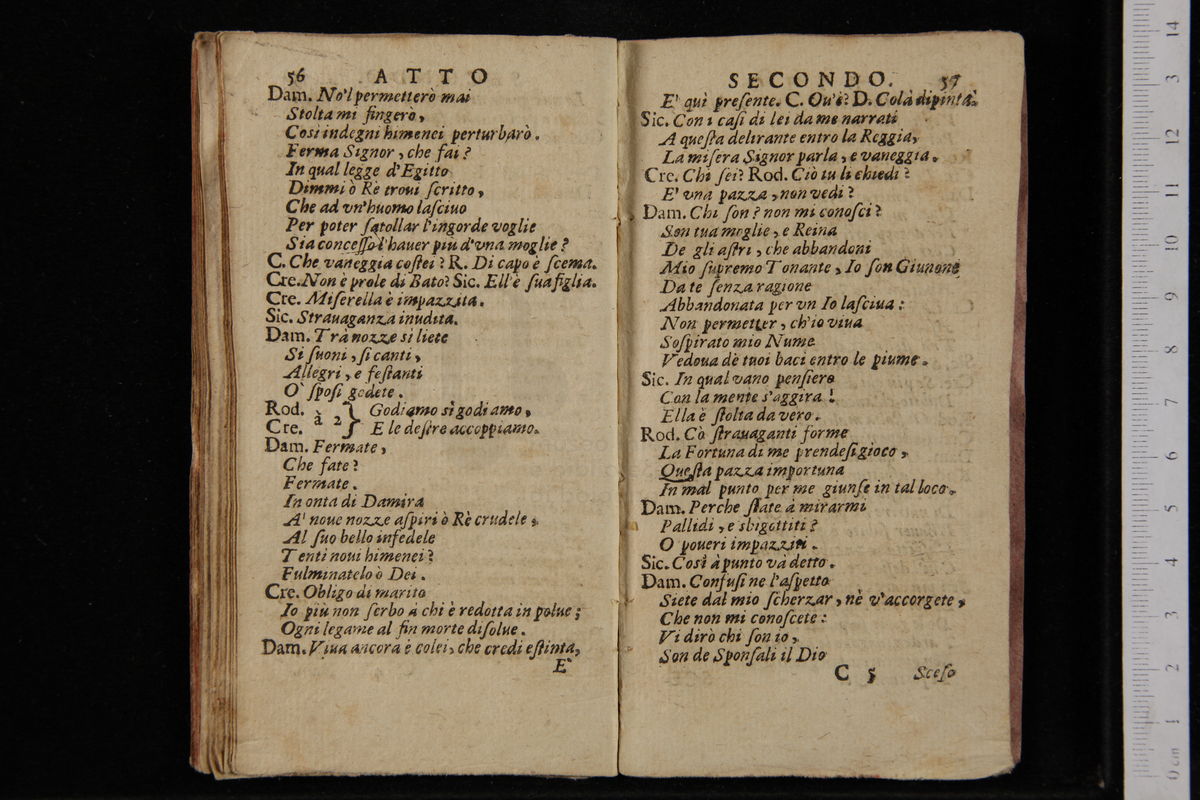 56 ATTO
Dam. No'l permetterò mai
Stolta mi fingerò,
Così indegni himenei perturbarò.
Ferma Signor, che fai?
In qual legge d'Egitto
Dimmi ò Rè troui ſcritto,
Che ad vn'huomo laſciuo
Per poter ſatollar l'ingorde voglie
Sia conceſſo l'hauer più d'vna moglie?
C. Che vaneggia coſtei? R. Di capo è ſcema.
Cre. Non è prole di Bato? Sic. Ell'è ſua figlia.
Cre. Miſerella è impazzita.
Sic. Strauaganza inudita.
Dam. Trà nozze sì liete
Si ſuoni, ſi canti,
Allegri, e feſtanti
O' ſpoſi godete.
Rod. Cre. à 2} Godiamo sì godiamo,
E le deſtre accoppiamo.
Dam. Fermate,
Che fate?
Fermate.
In onta di Damira
A' noue nozze aſpiri ò Rè crudele,
Al ſuo bello infedele
Tenti noui himenei?
Fulminatelo ò Dei.
Cre. Obligo di marito
Io più non ſerbo à chi è redotta in polue;
Ogni legame al fin morte diſolue.
Dam. Viua ancora è colei, che credi eſtinta,
E'
SECONDO. 57
E' quì preſente. C. Ou'è? D. Colà dipinta.
Sic. Con i caſi di lei da me narrati
A queſta delirante entro la Reggia,
La miſera Signor parla, e vaneggia.
Cre. Chi ſei? Rod. Ciò tu li chiedi?
E' vna pazza, non vedi?
Dam. Chi ſon? non mi conoſci?
Son tua moglie, e Reina
De gli aſtri, che abbandoni
Mio ſupremo Tonante, Io ſon Giunone
Da te ſenza ragione
Abbandonata per vn Io laſciua:
Non permetter, ch'io viua
Soſpirato mio Nume
Vedoua dè tuoi baci entro le piume.
Sic. In qual vano penſiero
Con la mente s'aggira!
Ella è ſtolta da vero.
Rod. Cò ſtrauaganti forme
La Fortuna di me prendeſi gioco,
Queſta pazza importuna
In mal punto per me giunſe in tal loco.
Dam. Perche ſtate à mirarmi
Pallidi, e sbigottiti?
O poueri impazziti.
Sic. Così à punto và detto.
Dam. Confuſi ne l'aſpetto
Siete dal mio ſcherzar, nè v'accorgete,
Che non mi conoſcete:
Vi dirò chi ſon io,
Son de Sponſali il Dio
C 5 Sceſo
0 cm 1 2 3 4 5 6 7 8 9 10 11 12 3 14